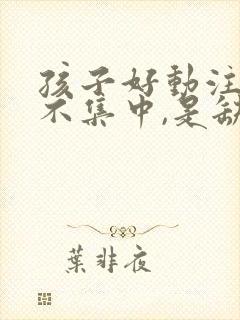 孩子好動注
不集中,是缺
葉非夜